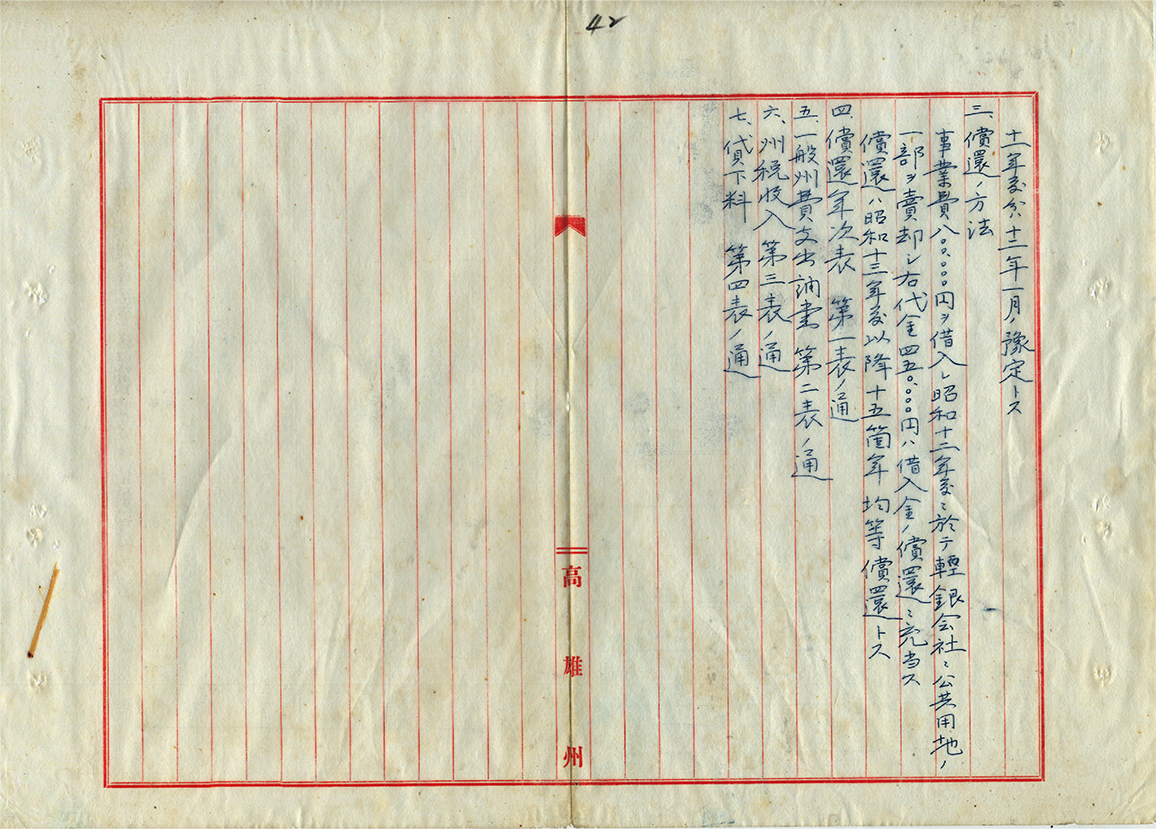 42
十一年度分ハ十二年一月ノ豫定トス
三、償還ノ方法
事業費八〇.〇〇〇円ヲ借入シ昭和十二年度ニ於テ輕銀会社ニ公共用地ノ
一部ヲ賣却シ右代金四五〇.〇〇〇円ハ借入金ノ償還ニ充当ス
償還ハ昭和十三年度以降十五箇年均等償還トス
四、償還年次表 第一表ノ通
五、一般州費支出調書 第二表ノ通
六、州税收入 第三表ノ通
七、貸下料 第四表ノ通
高雄州